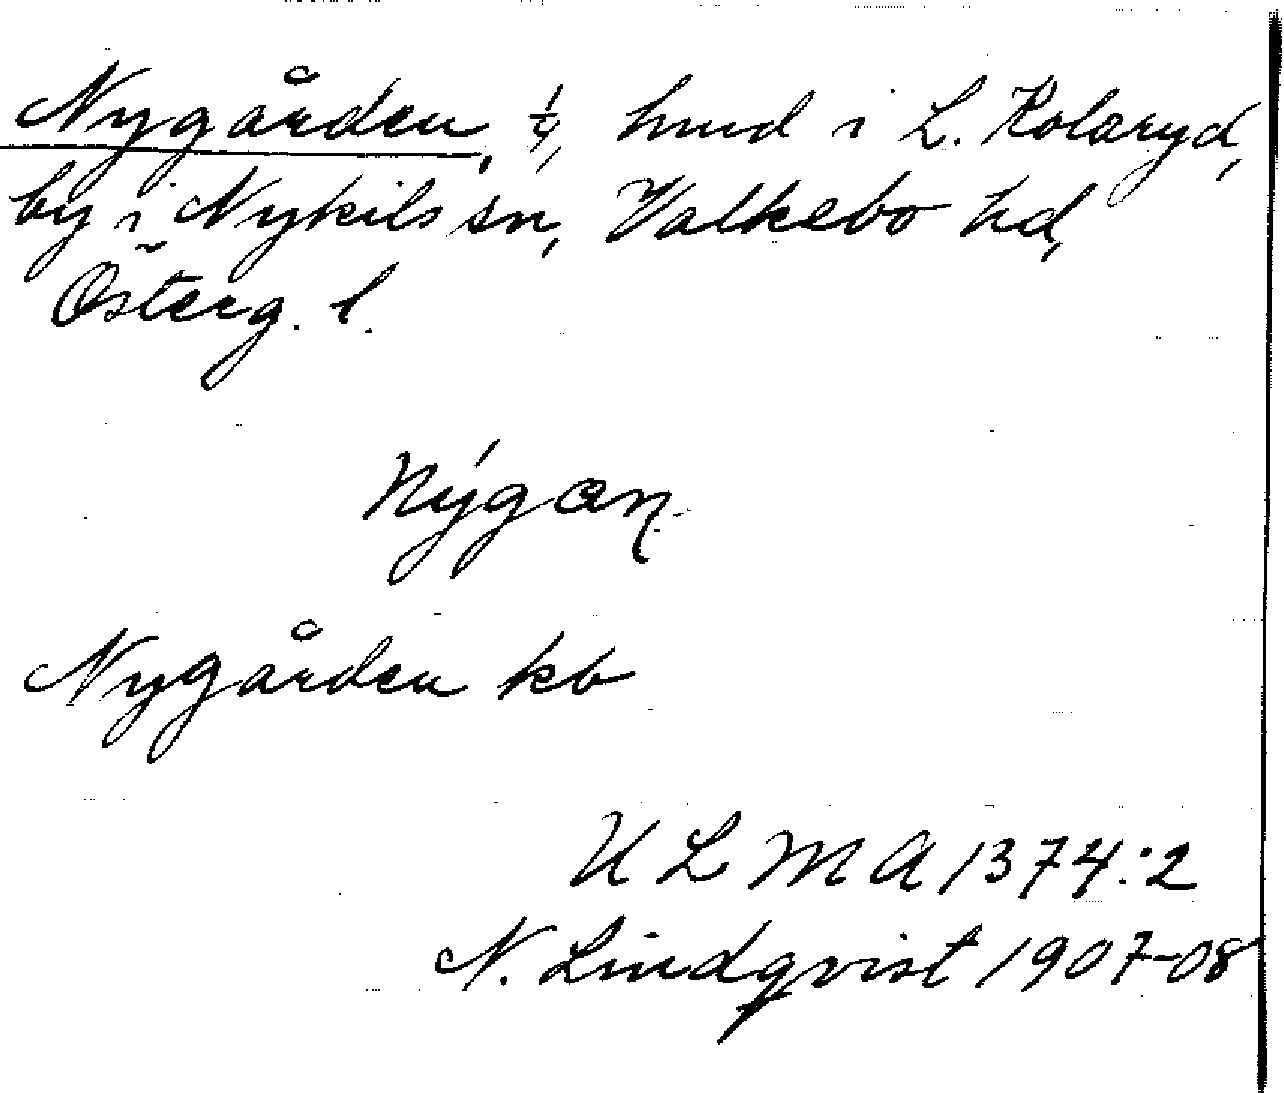 Nygården, ¼, hmd i L. Kolaryd,
by i Nykils sn, Valkebo hd,
Österg. l.
Nýgan
Nygården kb
ULMA 1374:2
N. Lindqvist 1907-08